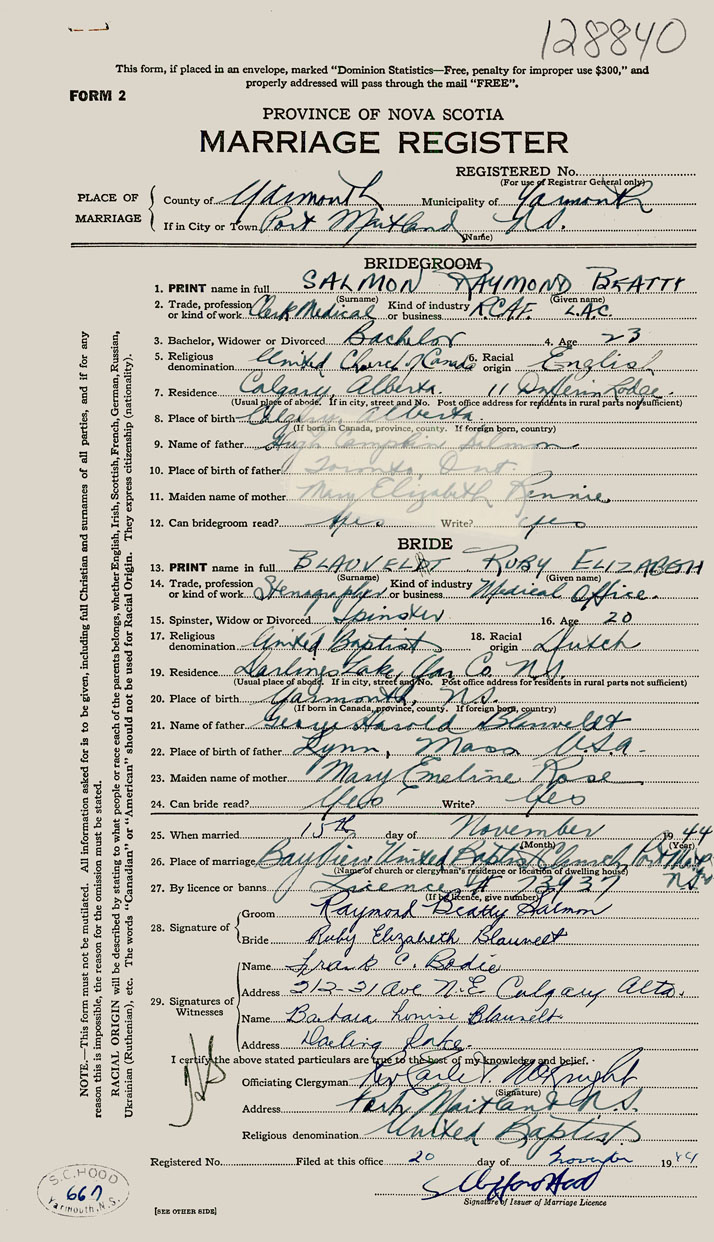 128840
This form, if placed in an envelope, marked “Dominion Statistics—Free, penalty for improper use $300,” and
properly addressed will pass through the mail “FREE”.
FORM 2
PROVINCE OF NOVA SCOTIA
MARRIAGE REGISTER
REGISTERED No.
(For use of Registrar General only)
PLACE OF MARRIAGE
County of Yarmouth Municipality of Yarmouth
If in City or Town Port Maitland N.S.
(Name)
BRIDEGROOM
1. PRINT name in full SALMON RAYMOND BEATTY
(Surname) (Given name)
2. Trade, profession or kind of work Clerk Medical Kind of industry or business R.C.A.F. L.A.C.
3. Bachelor, Widower or Divorced Bachelor 4. Age 23
5. Religious denomination United Church of Canada 6. Racial origin English
7. Residence Calgary, Alberta. 11 Dufferin Lodge.
(Usual place of abode. If in city, street and No. Post office address for residents in rural parts not sufficient)
8. Place of birth Calgary, Alberta.
(If born in Canada, province, county. If foreign born, country)
9. Name of father Hugh Salmon
10. Place of birth of father Toronto, Ont.
11. Maiden name of mother Mary Elizabeth Rennie
12. Can bridegroom read? Yes Write? Yes
BRIDE
13. PRINT name in full BLAUVELDT RUBY ELIZABETH
(Surname) (Given name)
14. Trade, profession or kind of work Stenographer Kind of industry or business Medical Office.
15. Spinster, Widow or Divorced Spinster 16. Age 20
17. Religious denomination United Baptist 18. Racial origin Dutch
19. Residence Darlings Lake, Yar. Co. N.S.
(Usual place of abode. If in city, street and No. Post office address for residents in rural parts not sufficient)
20. Place of birth Yarmouth, N.S.
(If born in Canada, province, county. If foreign born, country)
21. Name of father George Harold Blauveldt
22. Place of birth of father Lynn, Mass U.S.A.
23. Maiden name of mother Mary Emeline Rose
24. Can bride read? Yes Write? Yes
25. When married 15th day of November 1944
(Month) (Year)
26. Place of marriage Bay View United Baptist Church, Port Maitland N.S.
(Name of church or clergyman's residence or location of dwelling house)
27. By licence or banns Licence # 73937
(If by licence, give number)
28. Signature of
Groom Raymond Beatty Salmon
Bride Ruby Elizabeth Blauvelt
29. Signatures of Witnesses
Name Frank C. Bodie
Address 212-31 Ave N.E Calgary Alta.
Name Barbara Louise Blauvelt
Address Darling Lake.
I certify the above stated particulars are true to the best of my knowledge and belief.
Officiating Clergyman Rev Earle McKnight
(Signature)
Address Port Maitland N.S.
Religious denomination United Baptist
Registered No. Filed at this office 20 day of November 1944
Clifford Hood
Signature of Issuer of Marriage Licence
[SEE OTHER SIDE]
S.C. HOOD
667
Yarmouth, N.S.
NOTE.—This form must not be mutilated. All information asked for is to be given, including full Christian and surnames of all parties, and if for any
reason this is impossible, the reason for the omission must be stated.
RACIAL ORIGIN will be described by stating to what people or race each of the parents belongs, whether English, Irish, Scottish, French, German, Russian,
Ukrainian (Ruthenian), etc. The words “Canadian” or “American” should not be used for Racial Origin. They express citizenship (nationality).